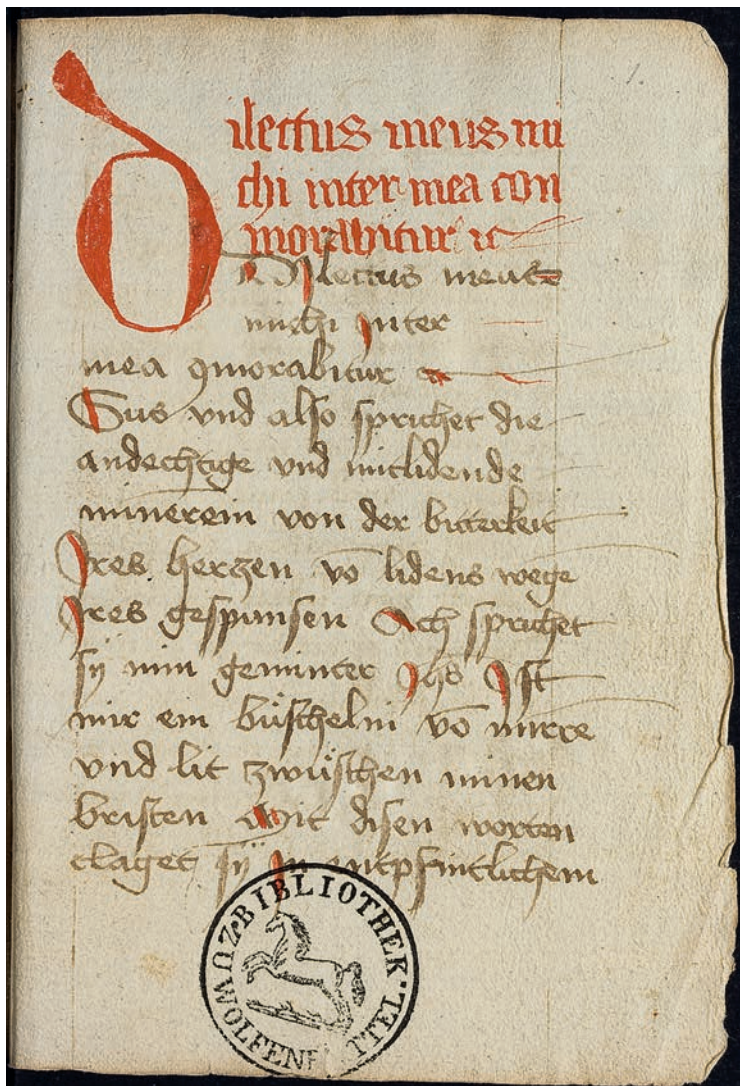 1.
Dilectus meus mi
chi inter mea con
morabitur ꝛc
Dilectus meus
michi inter
mea ꝯmorabitur ꝛc
Sus vnd also sprichet die
andechtige vnd mitlidende
minnerein von der bitterkeit
Ires herczen vō lidens wege
Ires gespunsen Ach sprichet
sÿ min geminter Ihs̄ Ist
mir ein büschelin vō mirre
vnd lit zwüschen minen
bristen Mit disen worten
claget sÿ In enpfintlichem
BIBLIOTHEK
ZU
WOLFENB TTEL.